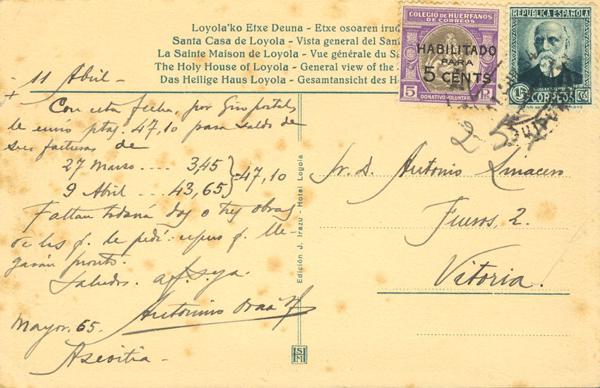 Loyola'ko Etxe Deuna - Etxe osoaren iru
Santa Casa de Loyola - Vista general del San
La Sainte Maison de Loyola - Vue générale du Sa
The Holy House of Loyola - General view of the
Das Heilige Haus Loyola - Gesamtansicht des H
COLEGIO DE HUERFANOS
DE CORREOS
HABILITADO
PARA
5 CENTS
5 DONATIVO VOLUNTARIO
REPUBLICA ESPAÑOLA
15 CORREOS CTS
11 Abril -
+ Con esta fecha, por Giro postal,
le envio ptas. 47,10 para saldo de
sus facturas de
27 Marzo .... 3,45
9 Abril .... 43,65 } 47,10
Faltan todavía dos o tres obras
de las q. le pedí: espero q. lle-
garán pronto.
Saludos.
Antonino Oraa
Mayor, 65.
Azcoitia -
Edición J. Irazu - Hotel Loyola
Sr. D. Antonio Linacero
Fueros, 2.
Vitoria.